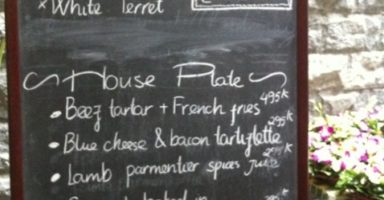 × White Terret
House Plate
• Beef tartar + French fries 495k
• Blue cheese & bacon tartylette 295k
• Lamb parmentier spices juice